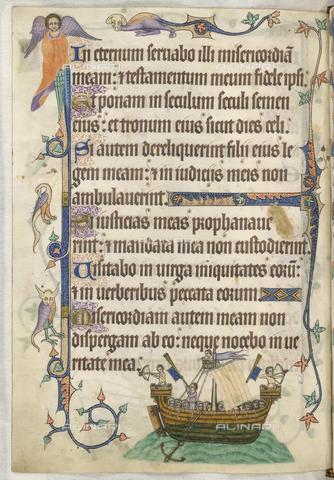 In eternum seruabo illi misericordiã
meam: ⁊ testamentum meum fidele ipsi.
Et ponam in seculum seculi semen
eius: et tronum eius sicut dies celi.
Si autem dereliquerint filii eius le
gem meam: ⁊ in iudiciis meis non
ambulauerint.
Si iusticias meas prophanaue
rint: ⁊ mandata mea non custodierint.
Uisitabo in uirga iniquitates eorũ:
⁊ in uerberibus peccata eorum.
Misericordiam autem meam non
dispergam ab eo: neque nocebo in ue
ritate mea.
ALINARI
ALINARI